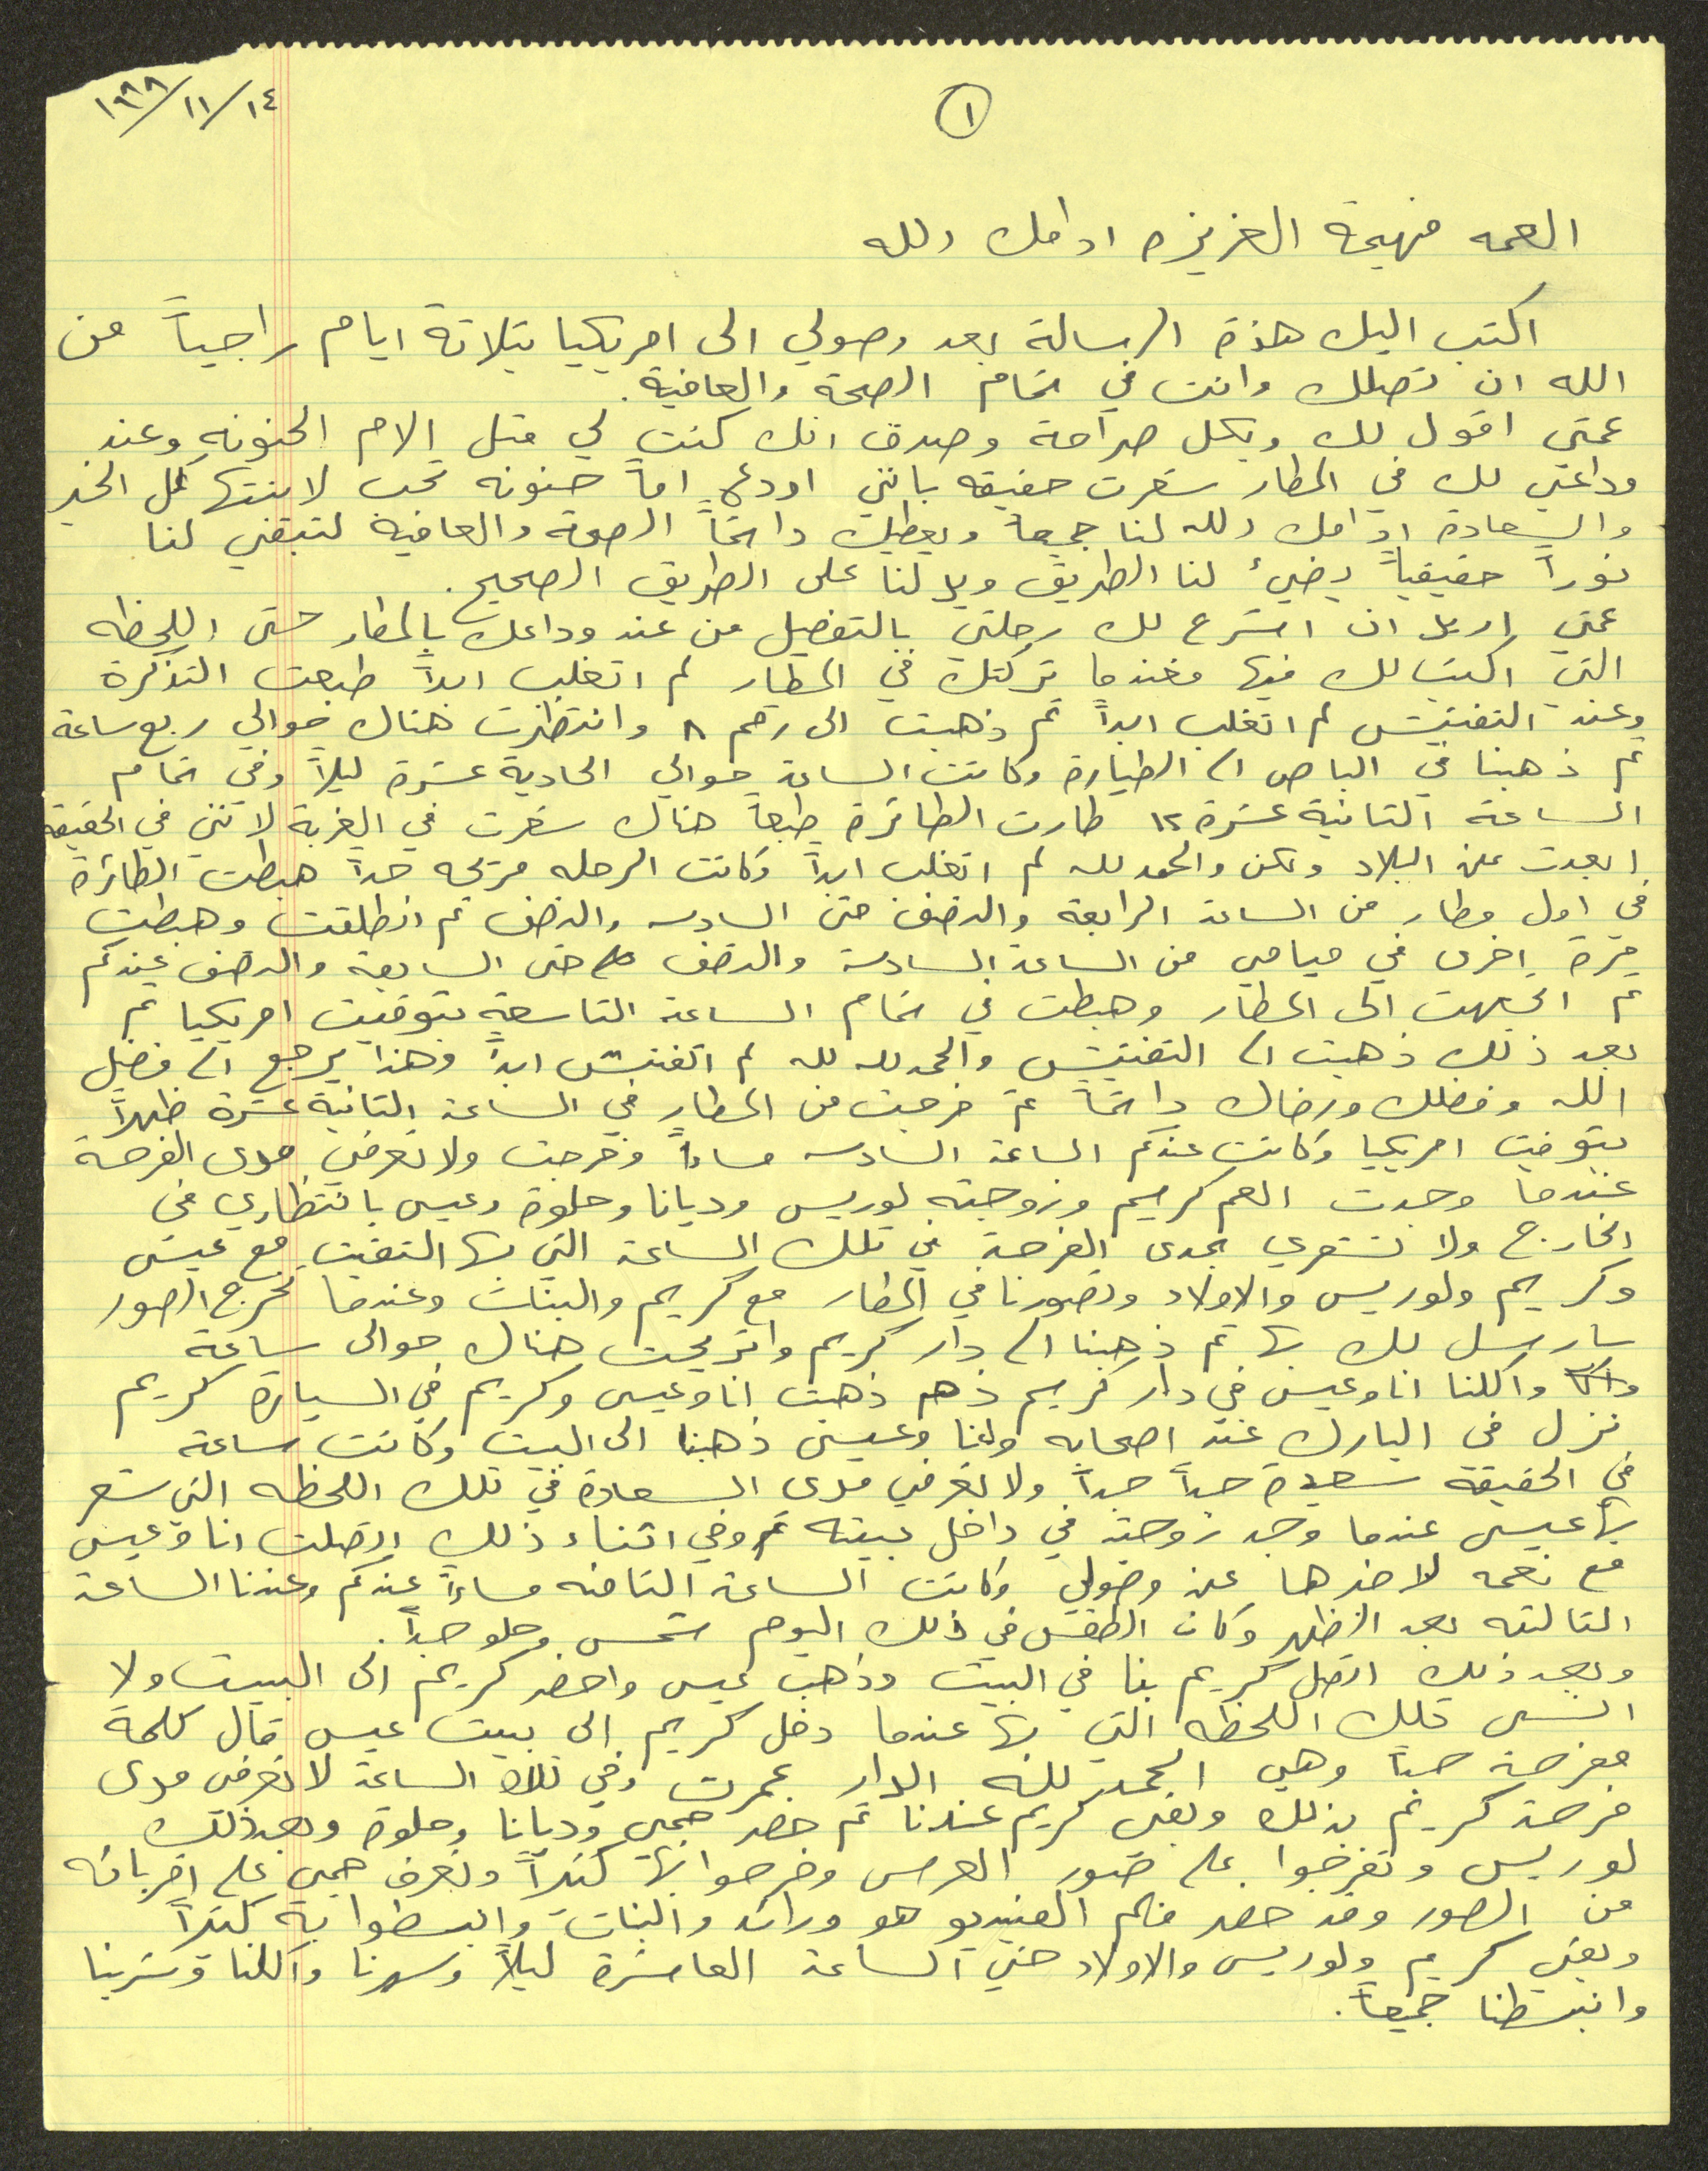 ١٤/١١/١٩٨٨
١
العمه فهيمة العزيزه ادامك الله
اكتب اليك هذة الرسالة بعد وصولي الى امريكيا بثلاثة ايام راجياً من
الله ان تصلك وانت في تمام الصحة والعافية.
عمتي اقول لك وبكل صراحة وصدق انك كنت لي مثل الام الحنونه وعند
وداعتي لك في المطار شعرت حقيقه بانني اودع اماً حنونه تحب لابنتها كل الخير
والسعادة ادامك الله لنا جميعاً ويعطيك دائماً الصحة والعافية لتبقي لنا
نوراً حقيقياً يضيء لنا الطريق ويدلنا على الطريق الصحيح.
عمتي اريد ان اشرح لك رحلتي بالتفصيل من عند وداعك بالمطار حتى اللحظه
التي اكتب لك فيها فعندما تركتك في المطار لم اتغلب ابداً طبعت التذكرة
وعند التفتيش لم اتغلب ابداً ثم ذهبت الى رقم ٨ وانتظرت هناك حوالي ربع ساعة
ثم ذهبنا في الباص الى الطيارة وكانت الساعة حوالي الحادية عشرة ليلاً وفي تمام
الساعة الثانية عشرة ١٢ طارت الطائرة طبعاً هناك شعرت في الغربة لانني في الحقيقه
ابعدت عن البلاد ولكن والحمد لله لم اتغلب ابداً وكانت الرحله مريحه جداً هبطت الطائرة
في اول مطار من الساعة الرابعة والنصف حتى السادسه والنصف ثم انطلقت وهبطت
مرة اخرى في ميامي من الساعة السادسة والنصف حتى السابعة والنصف عندكم
ثم اتجهت الى المطار وهبطت في تمام الساعة التاسعة بتوقيت امريكيا ثم
بعد ذلك ذهبت الى التفتيش والحمد لله لله لم اتفتش ابداً وهذا يرجع الى فضل
الله وفضلك ورضاك دائماً ثم خرجت من المطار في الساعة الثانية عشرة ظهراً
بتوقيت امريكيا وكانت عندكم الساعة السادسه مساءاً وخرجت ولا تعرفي مدى الفرحة
عندما وجدت العم كريم وزوجته لوريس وديانا وحلوة وعيسى بانتظاري في
الخارج ولا تشعري بمدى الفرحة في تلك الساعة التي بها التقيت مع عيسى
وكريم ولوريس والاولاد وتصورنا في المطار مع كريم والبنات وعندما تخرج الصور
سارسل لك بها ثم ذهبنا الى دار كريم واتريحت هناك حوالى ساعة
واكلنا انا وعيسى في دار كريم ذهبت انا وعيسى وكريم في السيارة كريم
نزل في البارك عند اصحابه وانا وعيسى ذهبنا الى البيت وكانت ساعة
في الحقيقة سعيدة جداً جداً ولا تعرفي مدى السعادة في تلك اللحظه التي شعر
بها عيسى عندما وجد زوجته في داخل بيته وفي اثناء ذلك اتصلت انا وعيسى
مع نعمه لاخبرها عن وصولي وكانت الساعة الثامنه مساءاً عندكم وعندنا الساعة
الثالثه بعد الظهر وكان الطقس في ذلك اليوم شمس وحلو جداً.
وبعد ذلك اتصل كريم بنا في البيت وذهب عيسى واحضر كريم الى البيت ولا
انسى تلك اللحظه التي بها عندما دخل كريم الى بيت عيسى قال كلمة
مفرحة جداً وهي الحمد لله الدار عمرت وفي تلك الساعة لا تعرفي مدى
فرحة كريم بذلك وبقى كريم عندنا ثم حضر جمي وديانا وحلوة وبعد ذلك
لوريس وتفرجوا على صور العرس وفرحوا بها كثيراً وتعرف جمي على اقربائه
من الصور وقد حضر فلم الفيديو هو ورائد والبنات وانبسطوا به كثيراً
وبقي كريم ولوريس والاولاد حتى الساعة العاشرة ليلاً وسهرنا واكلنا وشربنا
وانبسطنا جميعاً.